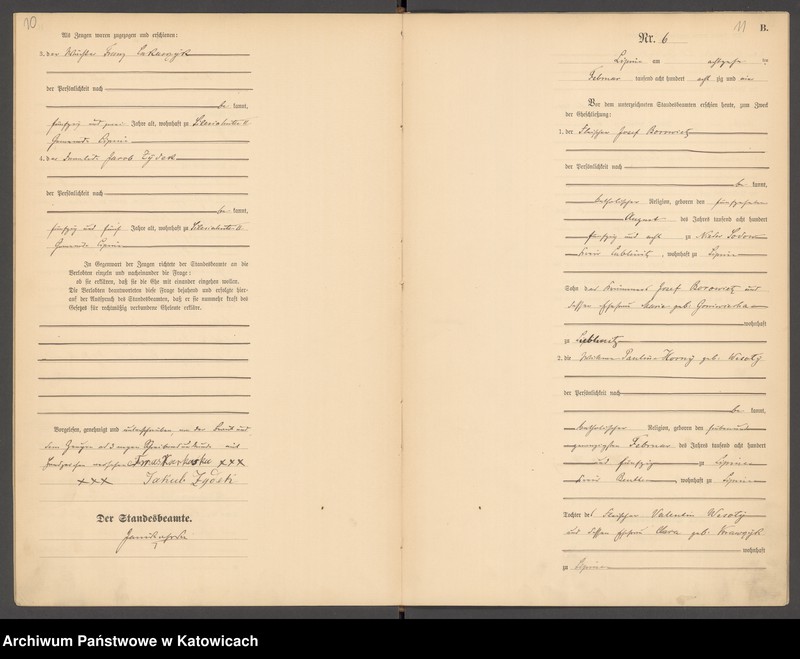 10
Als Zeugen waren zugezogen und erschienen:
3. der Wächter Franz
der Persönlichkeit nach
be kannt,
fünfzig und zwei Jahre alt, wohnhaft zu
Gemeinde Lipine
4. der Invalide Jacob
der Persönlichkeit nach
be kannt,
fünfzig und fünf Jahre alt, wohnhaft zu
Gemeinde Lipine
In Gegenwart der Zeugen richtete der Standesbeamte an die
Verlobten einzeln und nacheinander die Frage:
ob sie erklären, daß sie die Ehe mit einander eingehen wollen.
Die Verlobten beantworteten diese Frage bejahend und erfolgte hier-
auf der Ausspruch des Standesbeamten, daß er sie nunmehr kraft des
Gesetzes für rechtmäßig verbundene Eheleute erkläre.
Vorgelesen, genehmigt und unterschrieben, von der Braut und
dem Zeugen ad 3 wegen Schreibensunkunde mit
Handzeichen versehen. xxx
xxx Jakub
Der Standesbeamte.
11
B.
Nr. 6
Lipine am achtzehn ten
Februar tausend acht hundert acht zig und ein
Vor dem unterzeichneten Standesbeamten erschien heute, zum Zweck
der Eheschließung:
1. der Fleischer Josef Borowietz
der Persönlichkeit nach
be kannt,
katholischer Religion, geboren den fünfzehnten
August des Jahres tausend acht hundert
fünfzig und acht zu
Kreis Lublinitz, wohnhaft zu Lipine
Sohn des Josef Borowietz und
dessen Ehefrau Marie geb.
wohnhaft
zu Lublinitz
2. die Wittwe Pauline Horny geb. Wesoly
der Persönlichkeit nach
be kannt,
katholischer Religion, geboren den sieben und
zwanzigsten Februar des Jahres tausend acht hundert
und fünfzig zu Lipine
Kreis Beuthen, wohnhaft zu Lipine
Tochter des Fleischer Valentin Wesoly
und dessen Ehefrau Clara geb.
wohnhaft
zu Lipine
Archiwum Państwowe w Katowicach